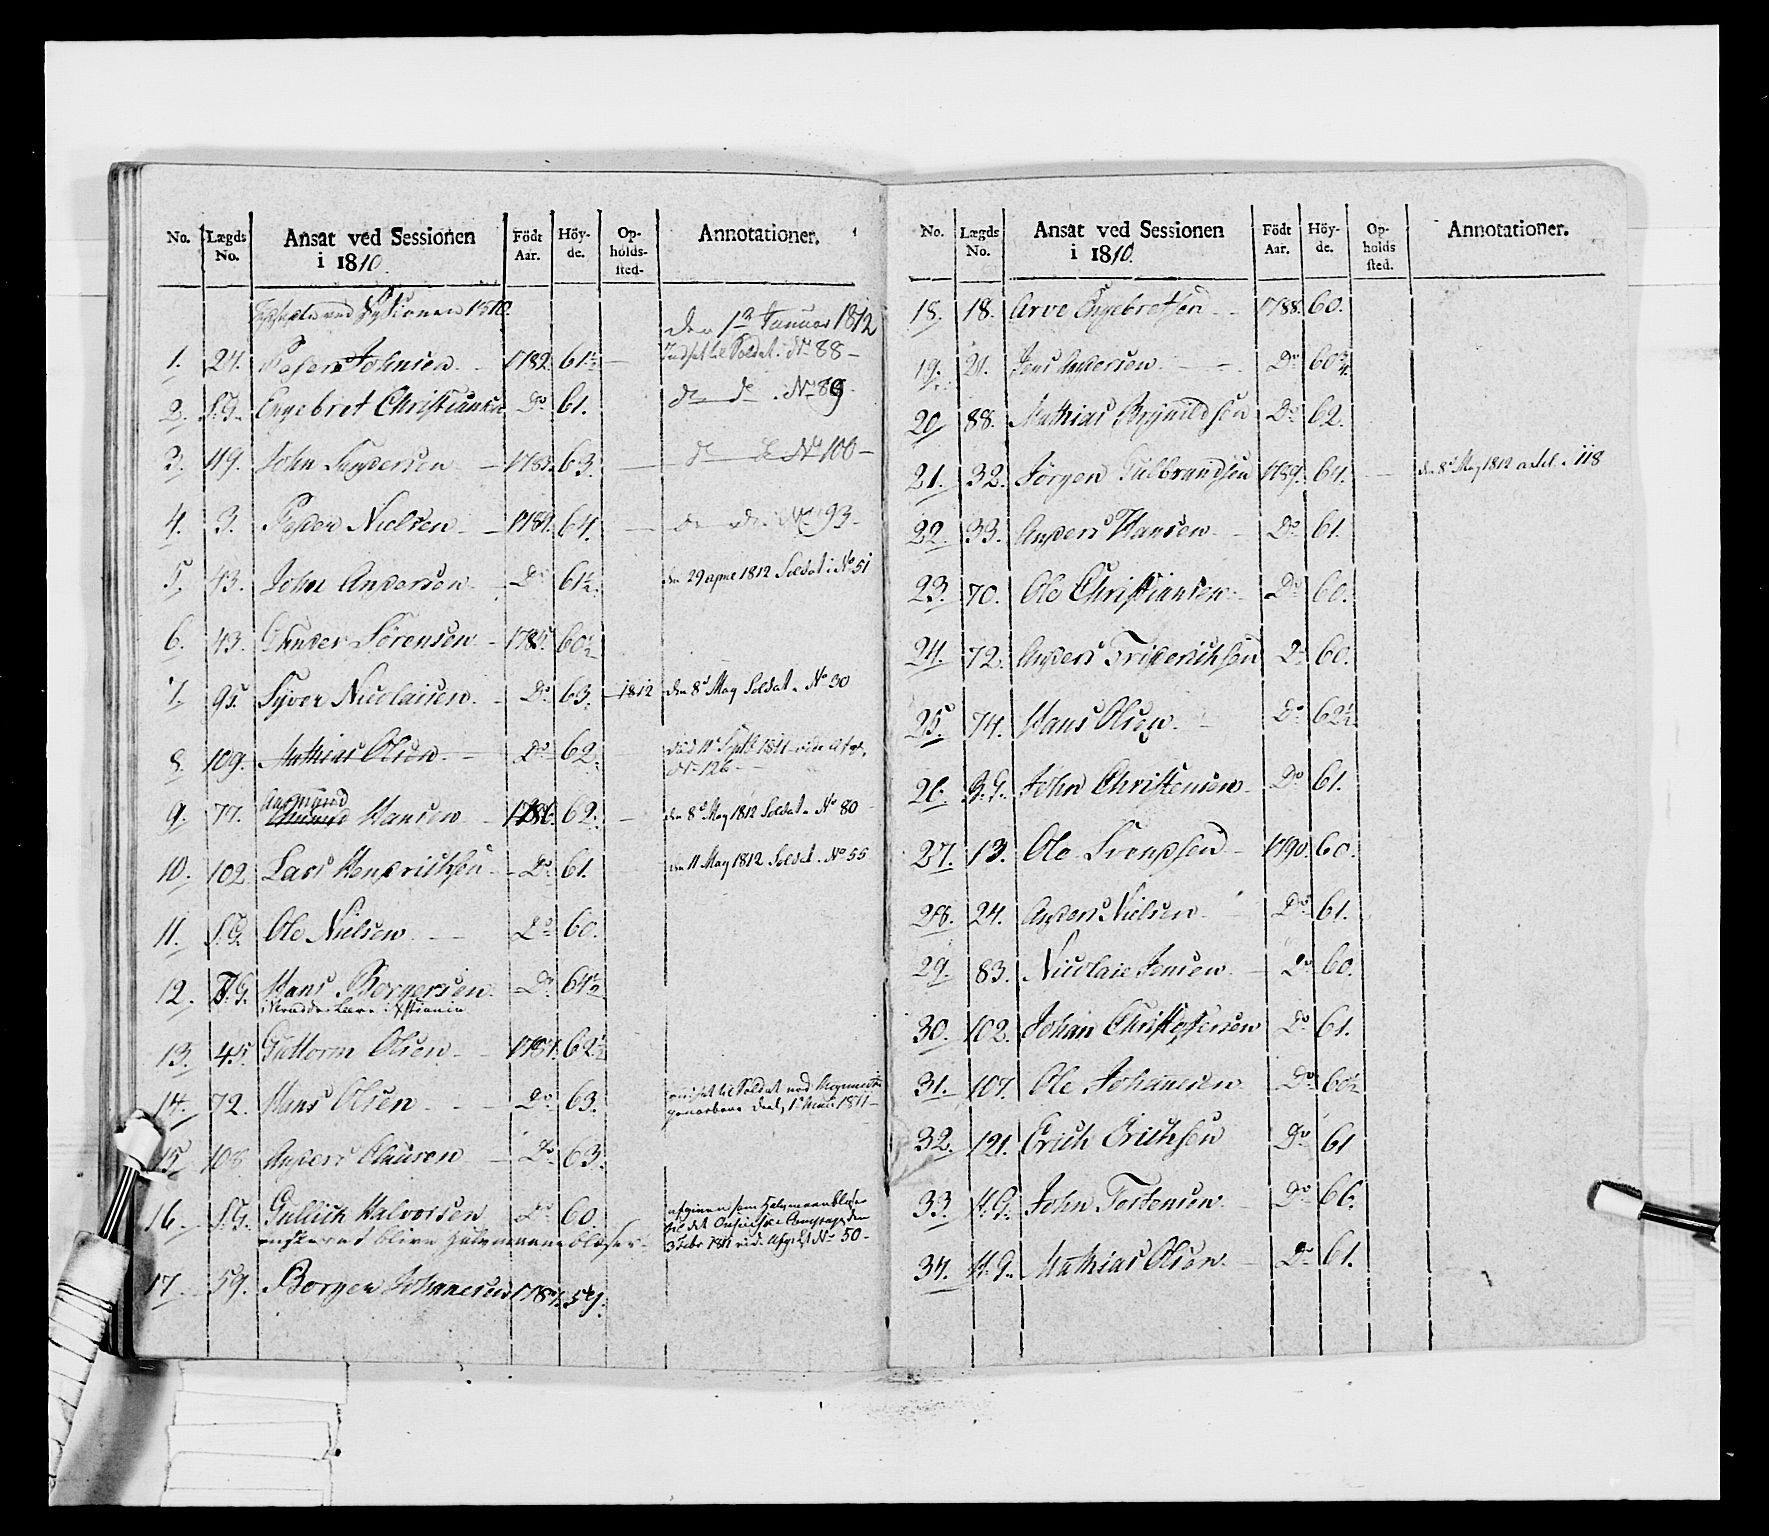 No. Lægds No. Ansat ved Sessionen i 1810. Födt Aar. Höy-de. Op-holds-sted. Annotationer.
ved Sessionen 1810.
Den 1ste Januar 1812
1. 24. Peder Johnsen 1782. 61½ Indsat til Soldat i No 88
2. S.G. Engebret Christiansen Do 61. do do No 89
3. 119. John Andersen 63. do do No 100
4. 3. Peder Nielsen 1784. 64. do do No 93
5. 43. John Andersen Do 61½ den 29 april 1812 Soldat i No 51
6. 43. Gunder Sörensen 1785. 60½
7. 95. Syver Nicolaisen Do 63. 1812 den 8d May Soldat No 30
8. 109. Mathias Olsen Do 62. død 11 Septb 1811 vide Afg.
No 126
9. 77. Aasmund Hansen 1786. 62. den 8d May 1812 Soldat No 80
10. 102 Lars Hendrichsen Do 61. den 11 May 1812 Soldat No 55
11. S.G. Ole Nielsen Do 60.
12. S.G. Hans Borgersen Do 61½
13. 45 Guttorm Olsen 1787. 62½
14. 72. Hans Olsen Do 63. ansat til Soldat ved Regiments
1811
15 108 Anders Clausen Do 63.
16. S.G. Gullich Halvorsen Do 60. afgiven som Halvmaaneblæser
til det Compagnie den
ønsker at blive Halvmaaneblæser
3 Febr 1811 vide Afg. No 50
17. 59. Borger Johannesen 1787. 59.
No. Lægds No. Ansat ved Sessionen i 1810. Födt Aar. Höy-de. Op-holds sted. Annotationer.
18. 18. Arve Engebretsen 1788. 60.
19. 21. Jens Andersen Do 60¾
20 88. Mathias Brynildsen Do 62.
21. 32. Jörgen Gulbrandsen 1789. 64. den 8d May 1812 118
22. 33. Anders Hansen Do 61.
23. 70. Ole Christiansen Do 60.
24. 72. Anders Friderichsen Do 60.
25. 74. Hans Olsen Do 62½
26. S.G. John Christensen Do 61.
27. 13. Ole Svendsen 1790. 60.
28. 24. Anders Nielsen Do 61.
29. 83. Nicolaie Jensen Do 60.
30. 102. Johan Christophersen Do 61.
31. 107. Ole Johannesen Do 60½
32. 121. Erich Erichsen Do 61
33. H.G. John Torstensen Do 66.
34. H.G. Mathias Olsen Do 61.